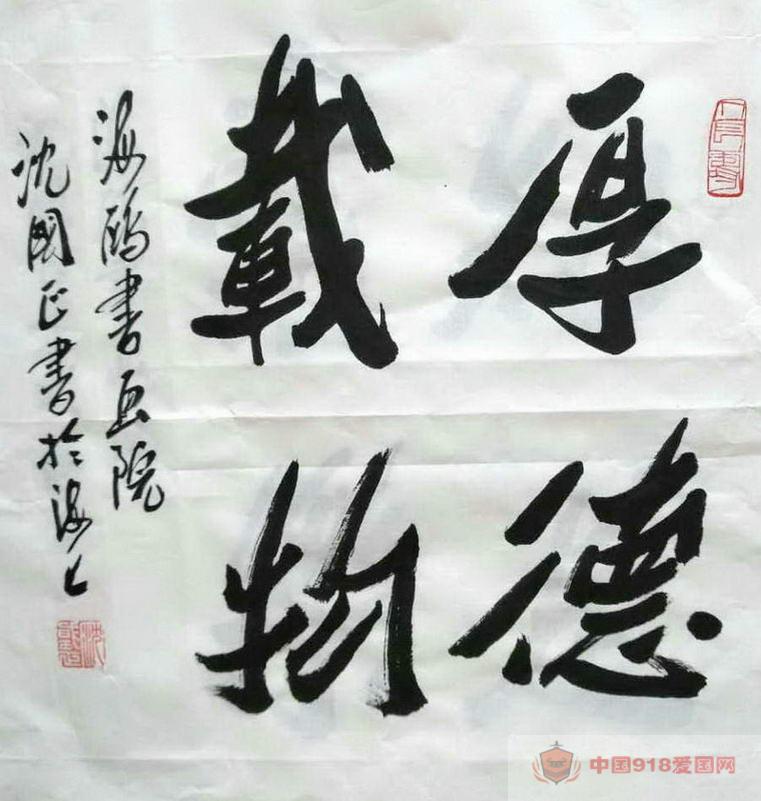 厚德
載物
海鸥書画院
沈國正書於海上
中国918爱国网